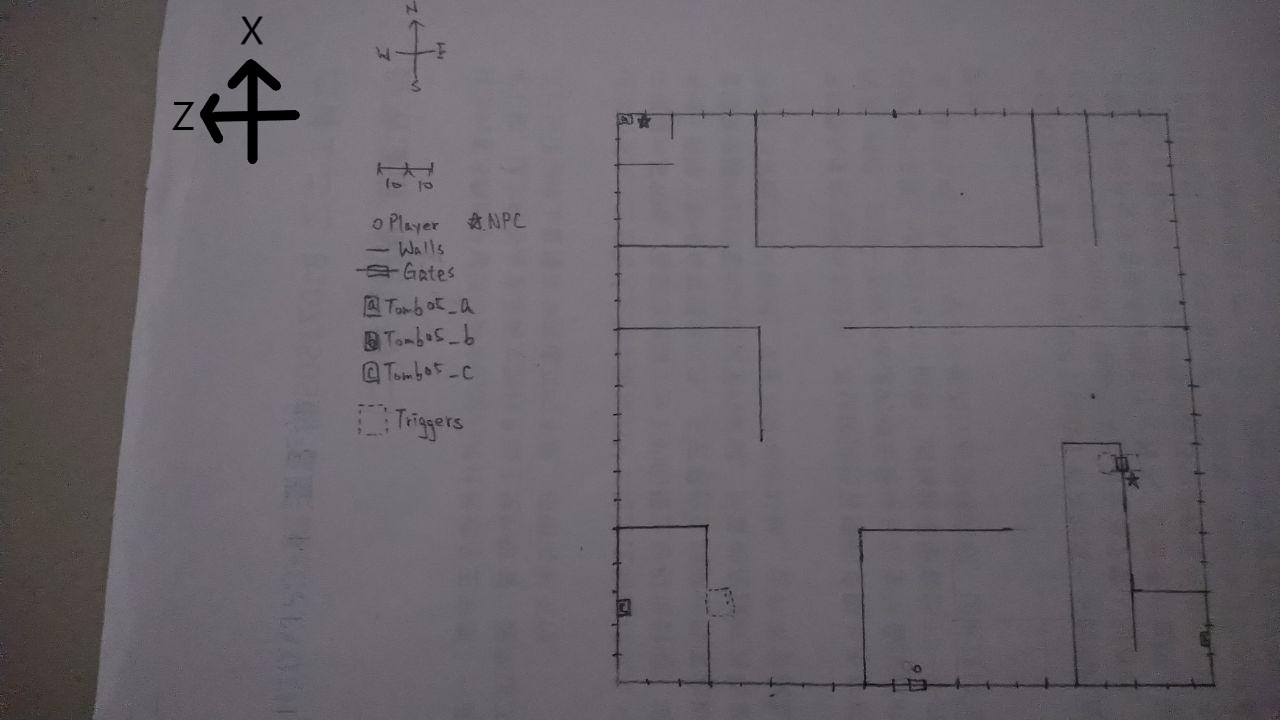 X
Z
N
W E
S
10 10
Player NPC
Walls
Gates
a Tomb05_a
b Tomb05_b
c Tomb05_c
Triggers
a
c